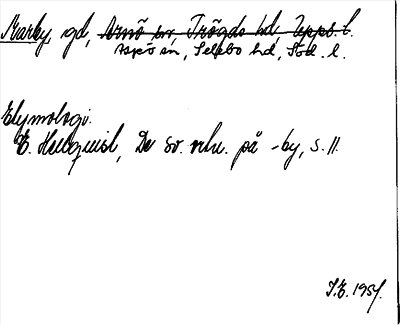 Karby, gd, Arnö sn, Trögds hd, Upps. l.
Aspö sn, Selebo hd, Söd. l.
Etymologi.
E. Hellquist, De sv. ortn. på -by, s. 11.
I.E. 1957.